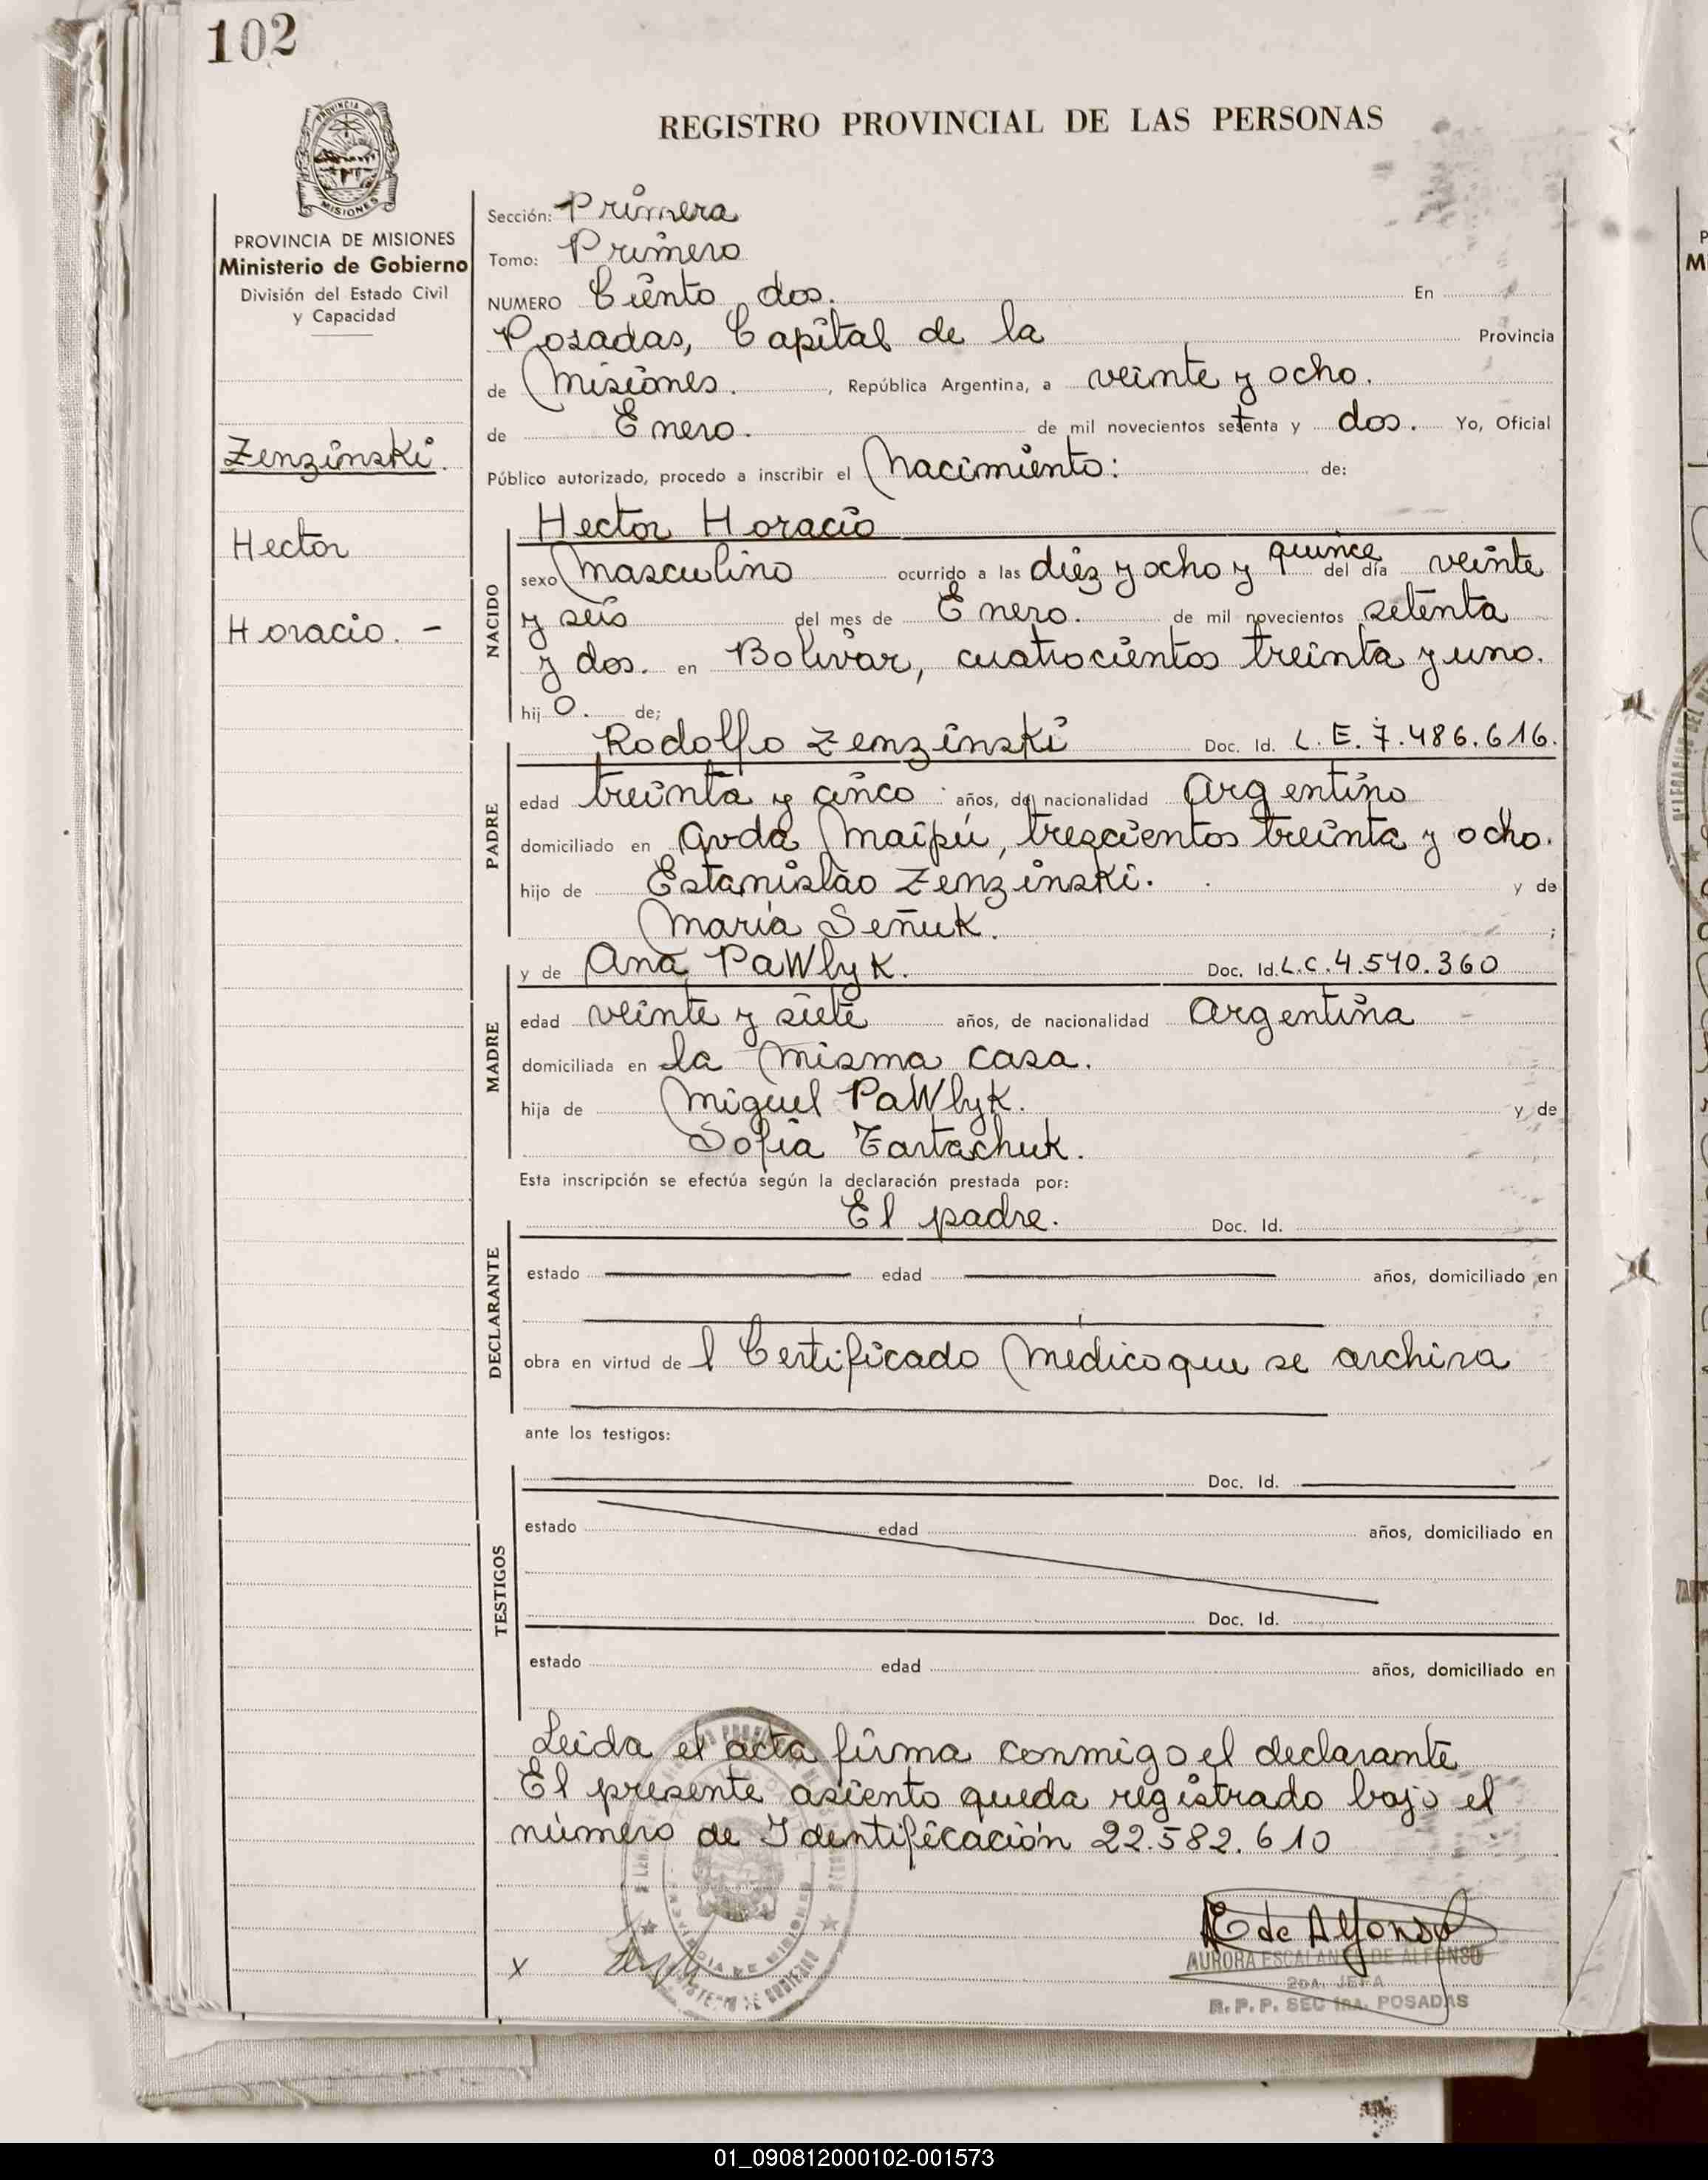 102
REGISTRO PROVINCIAL DE LAS PERSONAS
PROVINCIA
MISIONES
PROVINCIA DE MISIONES
Ministerio de Gobierno
División del Estado Civil
y Capacidad
Zenzinski.
Hector
Horacio. -
Sección: Primera
Tomo: Primero
NUMERO Ciento dos. En
Posadas, Capital de la Provincia
de Misiones. , República Argentina, a veinte y ocho.
de Enero. de mil novecientos setenta y dos. Yo, Oficial
Público autorizado, procedo a inscribir el Nacimiento: de:
Hector Horacio
NACIDO
sexo Masculino ocurrido a las diez y ocho y quince del día veinte
y seis del mes de Enero. de mil novecientos setenta
y dos. en Bolivar, cuatrocientos treinta y uno.
hij o. de;
PADRE
Rodolfo Zenzinski Doc. Id. L. E. 7.486.616.
edad treinta y cinco años, de nacionalidad Argentino
domiciliado en Avda Maipú, trescientos treinta y ocho.
hijo de Estanislao Zenzinski. y de
María Señuk. ;
MADRE
y de Ana PaWlyk. Doc. Id. L.C. 4.540.360
edad veinte y siete años, de nacionalidad Argentina
domiciliada en la misma casa.
hija de Miguel PaWlyk. y de
Sofia Tartachuk.
Esta inscripción se efectúa según la declaración prestada por:
El padre. Doc. Id.
DECLARANTE
estado edad años, domiciliado en
obra en virtud de l Certificado Médico que se archiva
ante los testigos:
TESTIGOS
Doc. Id.
estado edad años, domiciliado en
Doc. Id.
estado edad años, domiciliado en
Leida el acta firma conmigo el declarante
El presente asiento queda registrado bajo el
número de Identificación 22.582.610
x
E de Alfonso
AURORA ESCALANTE DE ALFONSO
2DA. JEFA
R. P. P. SEC 1RA. POSADAS
01_090812000102-001573